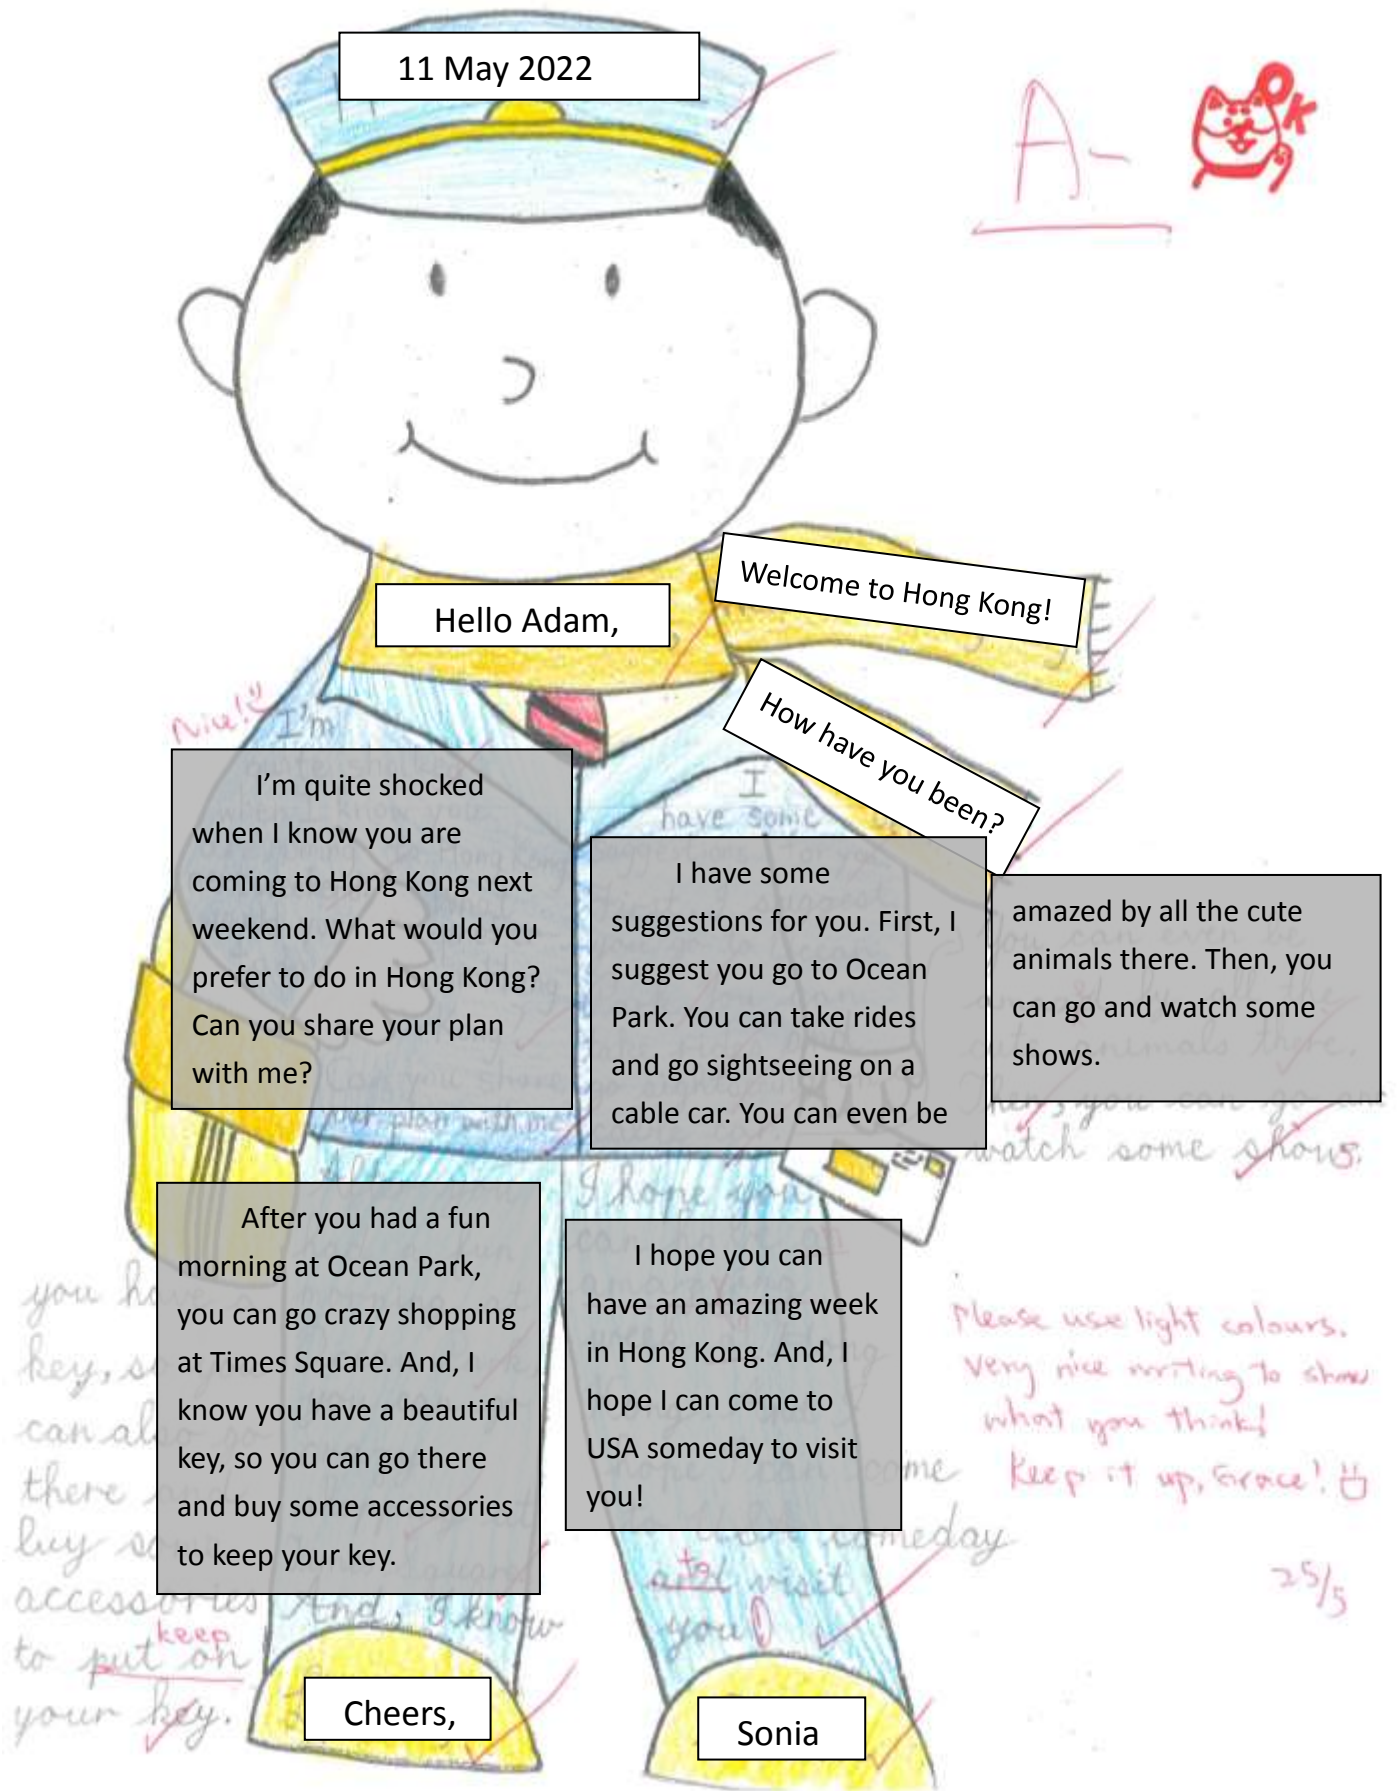 11 May 2022
A-
OK
Hello Adam,
Welcome to Hong Kong!
How have you been?
Nice!
I'm
I'm quite shocked
when I know you are
coming to Hong Kong next
weekend. What would you
prefer to do in Hong Kong?
Can you share your plan
with me?
I
have some
I have some
suggestions for you. First, I
suggest you go to Ocean
Park. You can take rides
and go sightseeing on a
cable car. You can even be
amazed by all the cute
animals there. Then, you
can go and watch some
shows.
Then, you can go and
watch some shows.
After you had a fun
morning at Ocean Park,
you can go crazy shopping
at Times Square. And, I
know you have a beautiful
key, so you can go there
and buy some accessories
to keep your key.
I hope you
I hope you can
have an amazing week
in Hong Kong. And, I
hope I can come to
USA someday to visit
you!
you
key,
can
there
buy
accessories
keep
to put on
your key.
And, I know
come
someday
to
and visit
you!
Please use light colours.
Very nice writing to show
what you think!
Keep it up, Grace!
25/5
Cheers,
Sonia